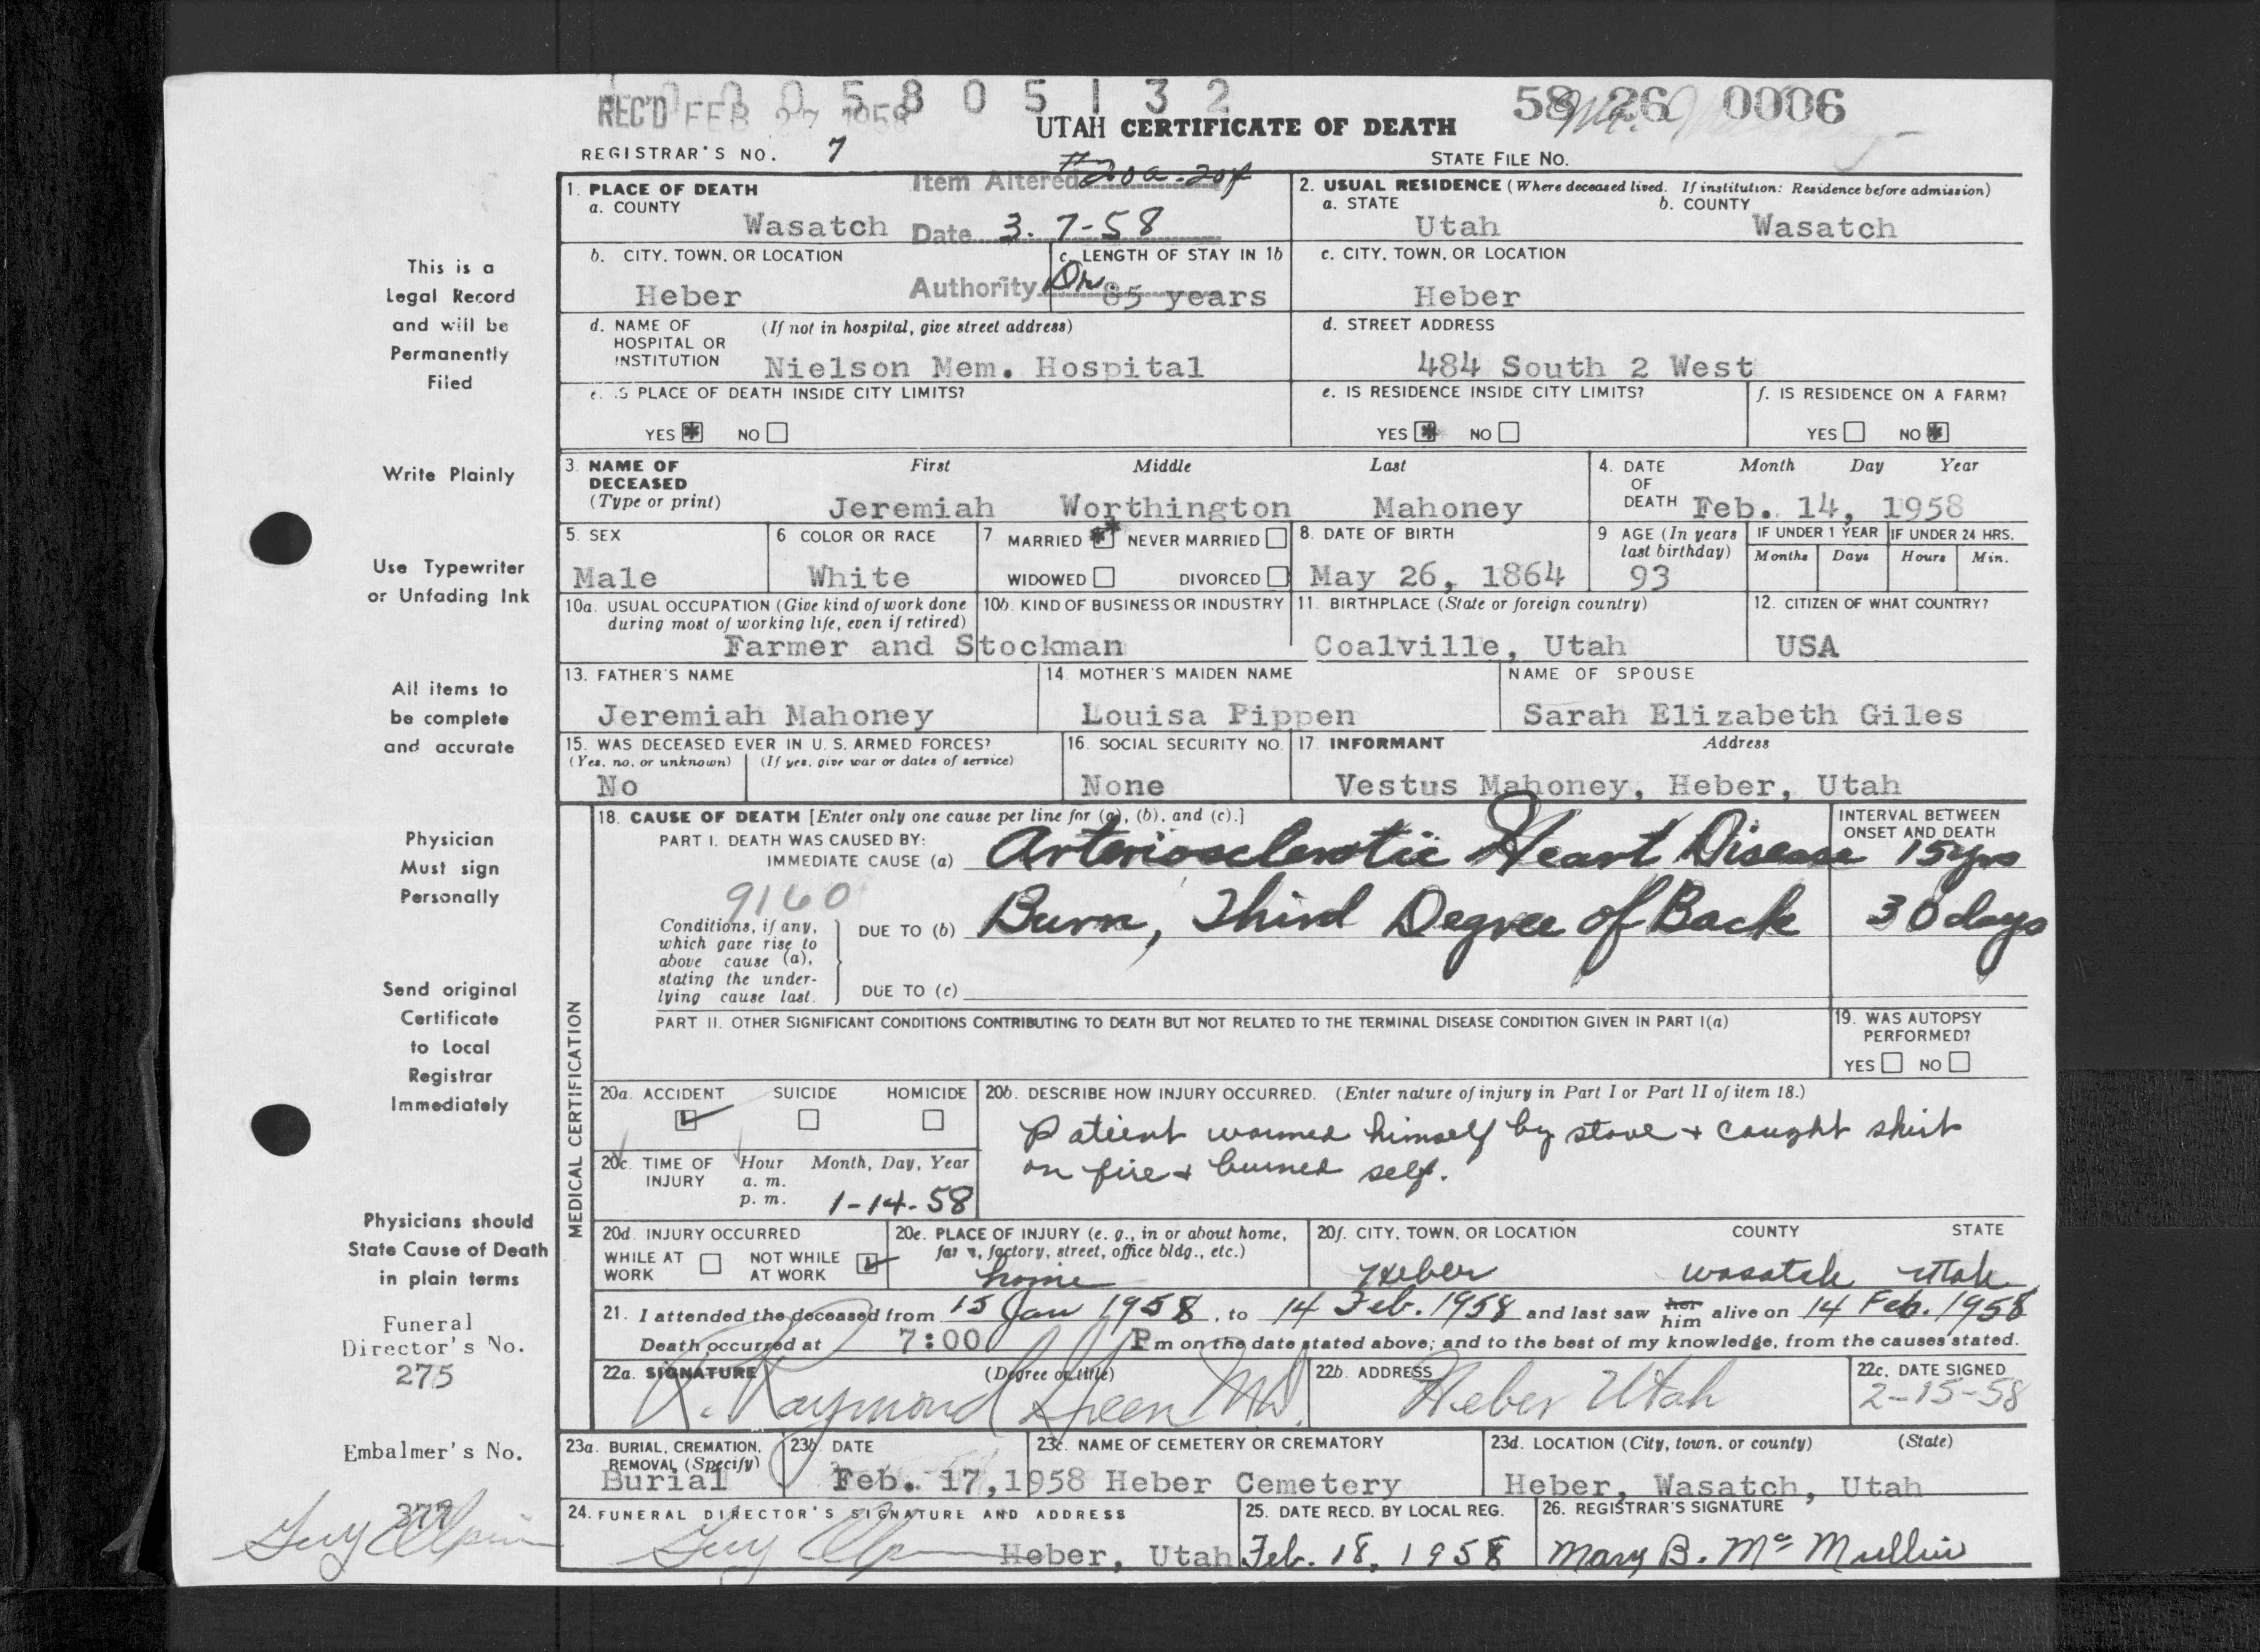 REC'D FEB 27 1958
0 5 8 0 5 1 3 2
58 26 0006
UTAH CERTIFICATE OF DEATH
REGISTRAR'S NO. 7
STATE FILE NO.
Item Altered #20a-20f
Date 3-7-58
Authority Dr.
1. PLACE OF DEATH
a. COUNTY
Wasatch
2. USUAL RESIDENCE (Where deceased lived. If institution: Residence before admission)
a. STATE b. COUNTY
Utah Wasatch
b. CITY, TOWN, OR LOCATION
Heber
c. LENGTH OF STAY IN 1b
85 years
c. CITY, TOWN, OR LOCATION
Heber
d. NAME OF HOSPITAL OR INSTITUTION (If not in hospital, give street address)
Nielson Mem. Hospital
d. STREET ADDRESS
484 South 2 West
e. IS PLACE OF DEATH INSIDE CITY LIMITS?
YES NO
e. IS RESIDENCE INSIDE CITY LIMITS?
YES NO
f. IS RESIDENCE ON A FARM?
YES NO
3. NAME OF DECEASED (Type or print)
First Middle Last
Jeremiah Worthington Mahoney
4. DATE OF DEATH Month Day Year
Feb. 14, 1958
5. SEX
Male
6 COLOR OR RACE
White
7. MARRIED NEVER MARRIED
WIDOWED DIVORCED
8. DATE OF BIRTH
May 26, 1864
9 AGE (In years last birthday)
93
IF UNDER 1 YEAR
Months Days
IF UNDER 24 HRS.
Hours Min.
10a. USUAL OCCUPATION (Give kind of work done during most of working life, even if retired)
10b. KIND OF BUSINESS OR INDUSTRY
Farmer and Stockman
11. BIRTHPLACE (State or foreign country)
Coalville, Utah
12. CITIZEN OF WHAT COUNTRY?
USA
13. FATHER'S NAME
Jeremiah Mahoney
14. MOTHER'S MAIDEN NAME
Louisa Pippen
NAME OF SPOUSE
Sarah Elizabeth Giles
15. WAS DECEASED EVER IN U. S. ARMED FORCES?
(Yes, no, or unknown) (If yes, give war or dates of service)
No
16. SOCIAL SECURITY NO.
None
17. INFORMANT Address
Vestus Mahoney, Heber, Utah
MEDICAL CERTIFICATION
18. CAUSE OF DEATH [Enter only one cause per line for (a), (b), and (c).]
INTERVAL BETWEEN ONSET AND DEATH
PART I. DEATH WAS CAUSED BY:
IMMEDIATE CAUSE (a) Arteriosclerotic Heart Disease 15 yrs
9160
Conditions, if any, which gave rise to above cause (a), stating the underlying cause last.
DUE TO (b) Burn, Third Degree of Back 30 days
DUE TO (c)
PART II. OTHER SIGNIFICANT CONDITIONS CONTRIBUTING TO DEATH BUT NOT RELATED TO THE TERMINAL DISEASE CONDITION GIVEN IN PART I(a)
19. WAS AUTOPSY PERFORMED?
YES NO
20a. ACCIDENT SUICIDE HOMICIDE
20b. DESCRIBE HOW INJURY OCCURRED. (Enter nature of injury in Part I or Part II of item 18.)
Patient warmed himself by stove + caught shirt
on fire + burned self.
20c. TIME OF INJURY Hour Month, Day, Year
a. m.
p. m. 1-14-58
20d. INJURY OCCURRED
WHILE AT WORK NOT WHILE AT WORK
20e. PLACE OF INJURY (e. g., in or about home, farm, factory, street, office bldg., etc.)
home
20f. CITY, TOWN, OR LOCATION COUNTY STATE
Heber Wasatch Utah
21. I attended the deceased from 15 Jan 1958, to 14 Feb. 1958 and last saw her him alive on 14 Feb. 1958
Death occurred at 7:00 P m on the date stated above; and to the best of my knowledge, from the causes stated.
22a. SIGNATURE (Degree or title)
R. Raymond Green MD.
22b. ADDRESS
Heber Utah
22c. DATE SIGNED
2-15-58
23a. BURIAL, CREMATION, REMOVAL (Specify)
Burial
23b. DATE
Feb. 17, 1958
23c. NAME OF CEMETERY OR CREMATORY
Heber Cemetery
23d. LOCATION (City, town, or county) (State)
Heber, Wasatch, Utah
24. FUNERAL DIRECTOR'S SIGNATURE AND ADDRESS
Heber, Utah
25. DATE RECD. BY LOCAL REG.
Feb. 18, 1958
26. REGISTRAR'S SIGNATURE
Mary B. McMullin
This is a
Legal Record
and will be
Permanently
Filed
Write Plainly
Use Typewriter
or Unfading Ink
All items to
be complete
and accurate
Physician
Must sign
Personally
Send original
Certificate
to Local
Registrar
Immediately
Physicians should
State Cause of Death
in plain terms
Funeral
Director's No.
275
Embalmer's No.
377